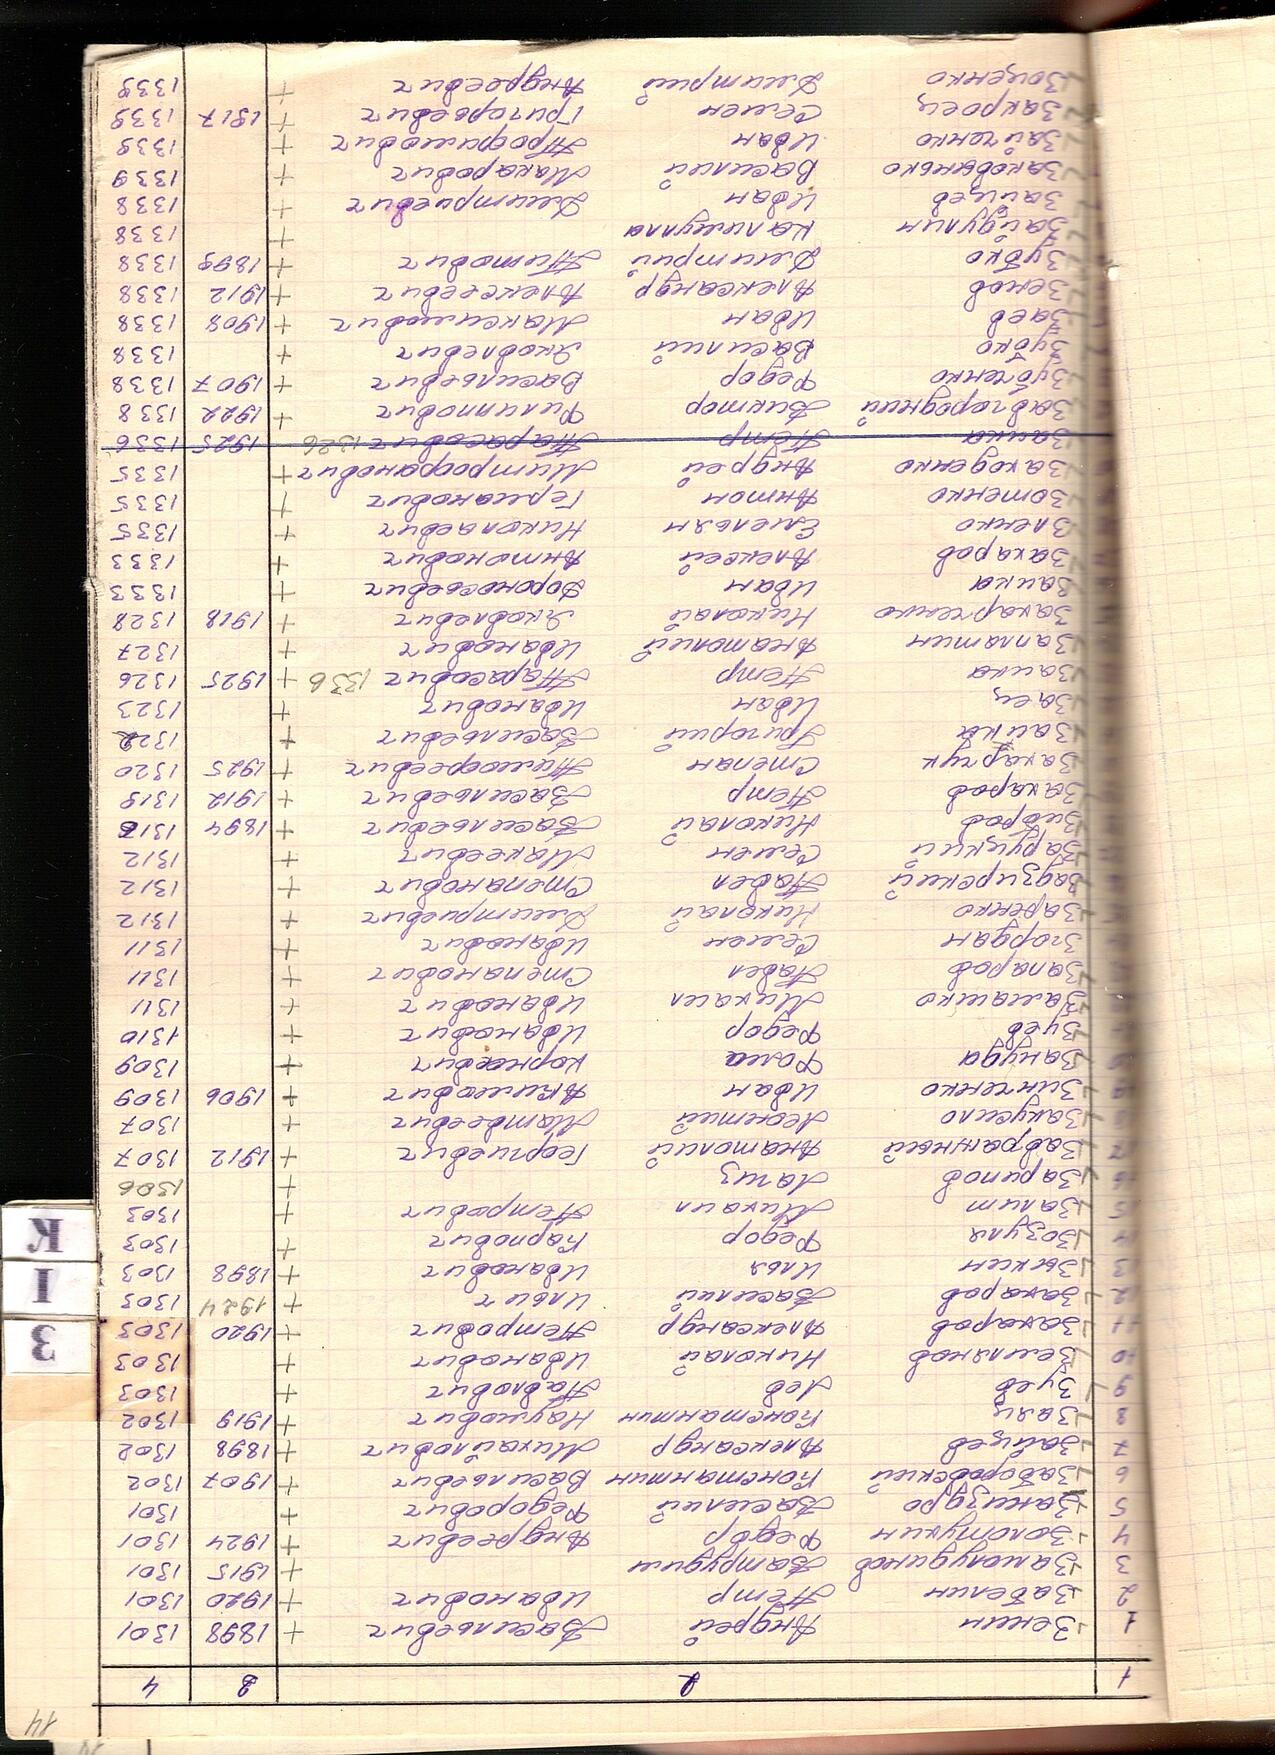 14
1 2 3 4
1 Зенин Андрей Васильевич 1898 + 1301
2 Забелин Петр Иванович 1920 + 1301
3 Замалудинов 1915 + 1301
4 Золотухин Федор Андреевич 1924 + 1301
5 Василий Федорович + 1301
6 Заборовский Константин Васильевич 1907 + 1302
7 Зайцев Александр Михайлович 1898 + 1302
8 Заяц Константин Наумович 1919 + 1302
9 Зуев Лев Павлович + 1303
10 Земляков Николай Иванович + 1303
11 Захаров Александр Петрович 1920 + 1303
12 Захаров Василий Ильич 1924 + 1303
13 Зыкин Илья Иванович 1898 + 1303
14 Зозуля Федор Карпович + 1303
15 Залит Михаил Петрович + 1303
16 Зарипов + 1306
17 Завражный Анатолий Георгиевич 1912 + 1307
Закусило Леонтий Матвеевич + 1307
Зинченко Иван Акимович 1906 + 1309
Зануда Фома Корнеевич + 1309
Зуев Федор Иванович + 1310
Замашко Михаил Иванович + 1311
Запаров Павел Степанович + 1311
Згордан Семен Иванович + 1311
Заренко Николай Дмитриевич + 1312
Задзирский Павел Степанович + 1312
Заруцкий Семен Макеевич + 1312
Зибров Николай Васильевич 1894 +
Захаров Петр Васильевич 1912 + 1319
Захарчук Степан Тимофеевич 1925 + 1320
Заика Григорий Васильевич +
Заец Иван Иванович + 1323
Заика Петр Тарасович 1336 1925 + 1326
Заплатин Анатолий Иванович + 1327
Захарченко Николай Яковлевич 1918 + 1328
Заика Иван + 1333
Захаров Алексей Антонович + 1333
Зленко Емельян Николаевич + 1335
Зотенко Антон Германович + 1335
Заходенко Андрей Митрофанович + 1335
Заика Петр Тарасович 1326 1925 1336
Завгородний Виктор Филиппович 1922 + 1338
Зубченко Федор Васильевич 1907 + 1338
Зубко Василий Яковлевич + 1338
Заев Иван Максимович 1908 + 1338
Зенов Александр Алексеевич 1912 + 1338
Зубко Дмитрий Титович 1899 + 1338
Зайдулин Калимулла + 1338
Зайцев Иван Дмитриевич + 1338
Василий Макарович + 1339
Зайченко Иван Трофимович + 1339
Закроец Семен Григорьевич 1917 + 1339
Зощенко Дмитрий Андреевич + 1339
З
І
К